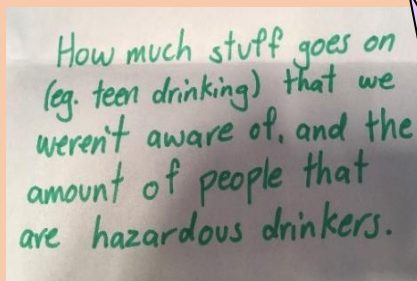 How much stuff goes on
(eg. teen drinking) that we
weren't aware of, and the
amount of people that
are hazardous drinkers.